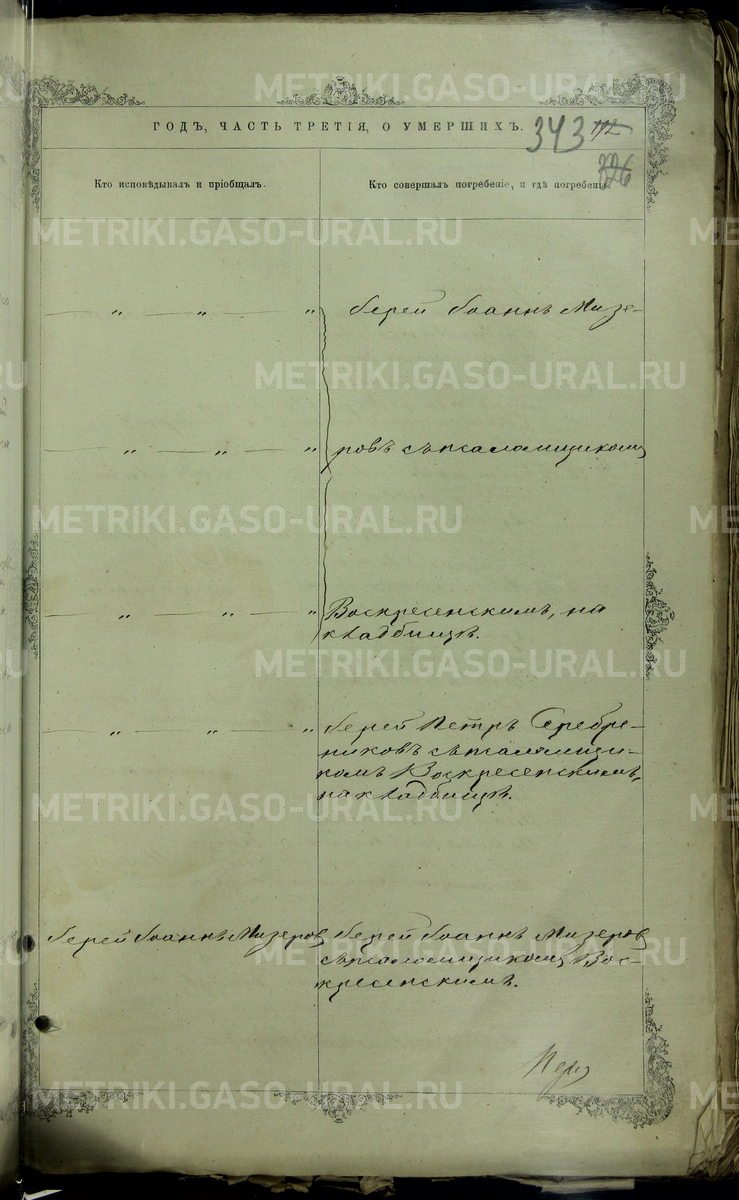 METRIKI.GASO-URAL.RU
ГОДЪ, ЧАСТЬ ТРЕТІЯ, О УМЕРШИХЪ.
343
Кто исповѣдывалъ и пріобщалъ.
Кто совершалъ погребеніе, и гдѣ погребены.
METRIKI.GASO-URAL.RU
— „ — „ — „
Іерей Іоаннъ Мизе-
METRIKI.GASO-URAL.RU
— „ — „ — „
ровъ съ псаломщикомъ
METRIKI.GASO-URAL.RU
— „ — „ — „
Воскресенскимъ, на
кладбищѣ.
METRIKI.GASO-URAL.RU
— „ — „ — „
Іерей Петръ Серебре-
никовъ съ псаломщи-
комъ Воскресенскимъ,
на кладбищѣ.
METRIKI.GASO-URAL.RU
Іерей Іоаннъ Мизеровъ
Іерей Іоаннъ Мизеровъ
съ псаломщикомъ Вос-
кресенскимъ.
METRIKI.GASO-URAL.RU
METRIKI.GASO-URAL.RU